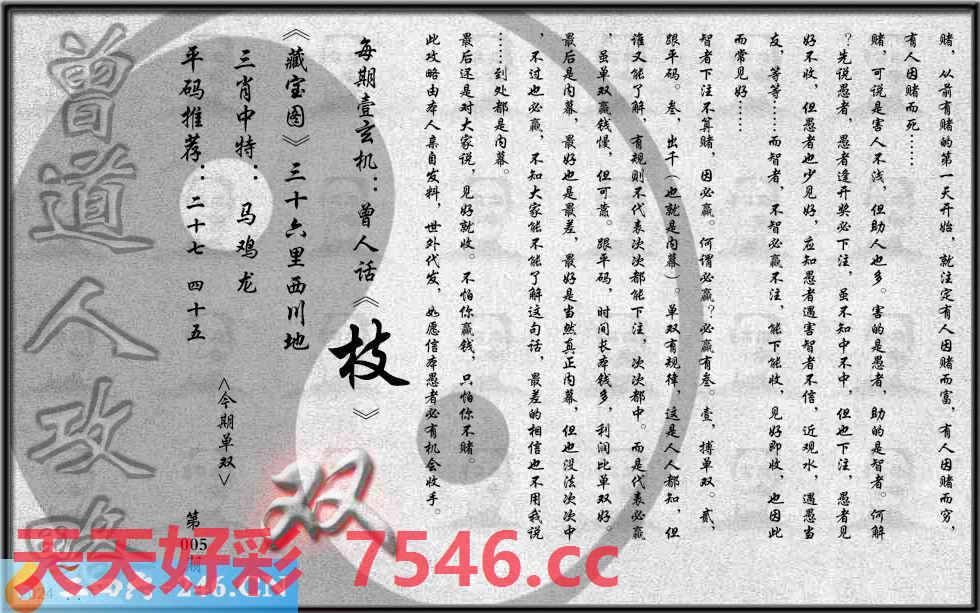 赌，从前有赌的第一天开始，就注定有人因赌而富，有人因赌而穷，
有人因赌而死……
赌，可说是害人不浅，但助人也多。害的是愚者，助的是智者。何解
？先说愚者，愚者逢开奖必下注，虽不知中不中，但也下注，愚者见
好不收，但愚者也少见好，应知愚者遇害智者不信，近观水，遇愚当
友，等等……而智者，不智必赢不注，能下能收，见好即收，也因此
而常见好……
智者下注不算赌，因必赢。何谓必赢？必赢有叁。壹，搏单双。贰，
跟平码。叁，出千（也就是内幕）。单双有规律，这是人人都知，但
谁又能了解，有规则不代表次次都能下注，次次都中。而是代表必赢
，虽单双赢钱慢，但可靠。跟平码，时间长本钱多，利润比单双好。
最后是内幕，最好也是最差，最好是当然真正内幕，但也没法次次中
，不过也必赢，不知大家能不能了解这句话，最差的相信也不用我说
……到处都是内幕。
最后还是对大家说，见好就收。不怕你赢钱，只怕你不赌。
此攻略由本人亲自发料，世外代发，如愿信本愚者必有机会收手。
每期壹玄机：曾人话《枝》
《藏宝图》三十六里西川地
三肖中特：马鸡龙
平码推荐：二十七 四十五
<今期单双>
双
第
005
期
曾道人攻略
天天好彩 7546.cc
246.CN